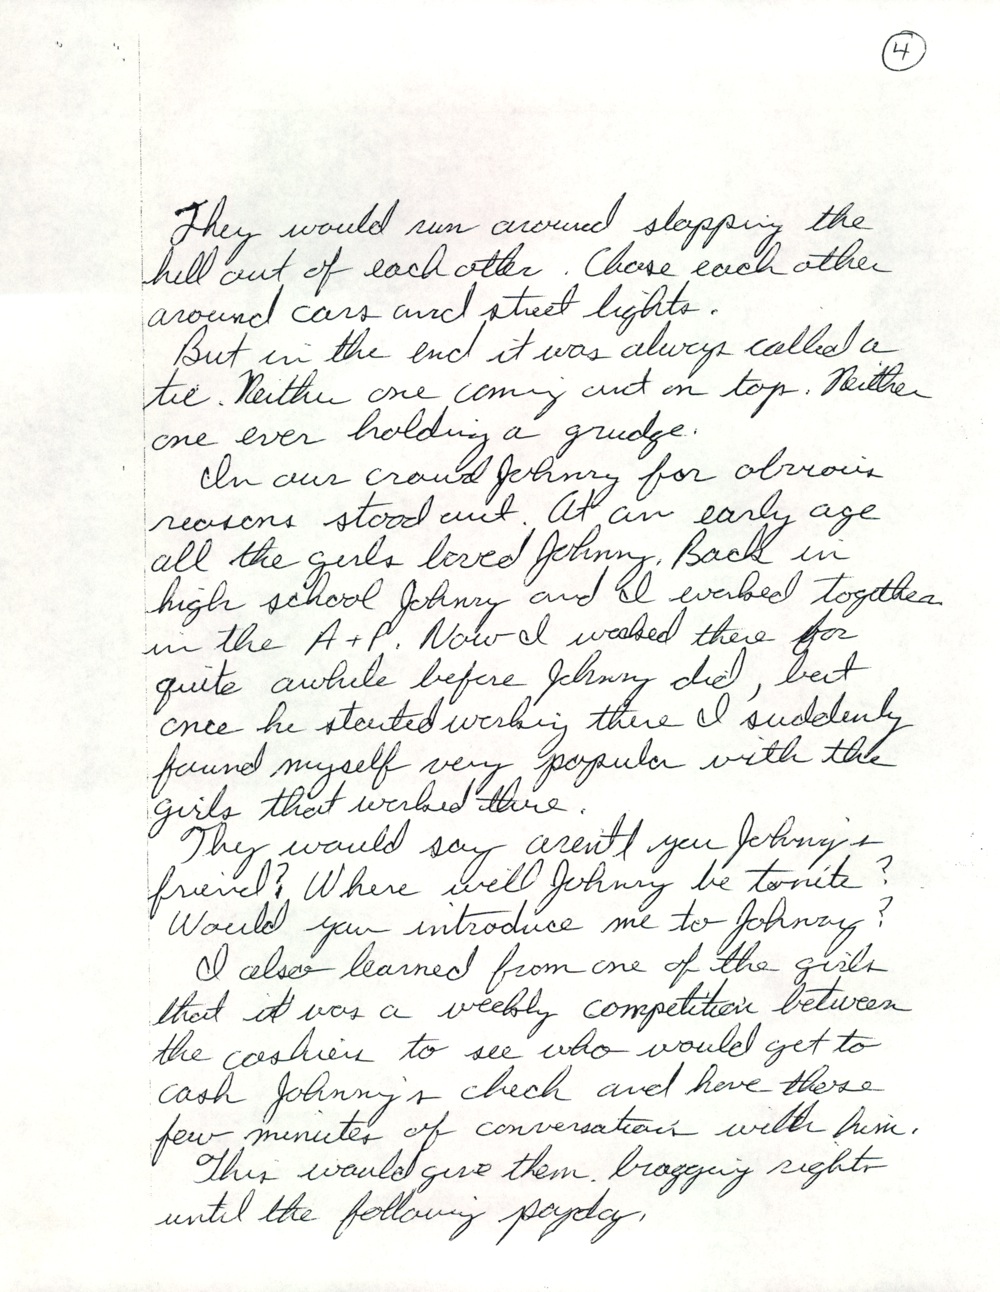 4
They would run around slapping the
hell out of each other. Chase each other
around cars and street lights.
But in the end it was always called a
tie. Neither one coming out on top. Neither
one ever holding a grudge.
In our crowd Johnny for obvious
reasons stood out. At an early age
all the girls loved Johnny. Back in
high school Johnny and I worked together
in the A+P. Now I worked there for
quite awhile before Johnny did, but
once he started working there I suddenly
found myself very popular with the
girls that worked there.
They would say aren't you Johnny's
friend? Where will Johnny be tonite?
Would you introduce me to Johnny?
I also learned from one of the girls
that it was a weekly competition between
the cashiers to see who would get to
cash Johnny's check and have those
few minutes of conversation with him.
This would give them bragging rights
until the following payday.